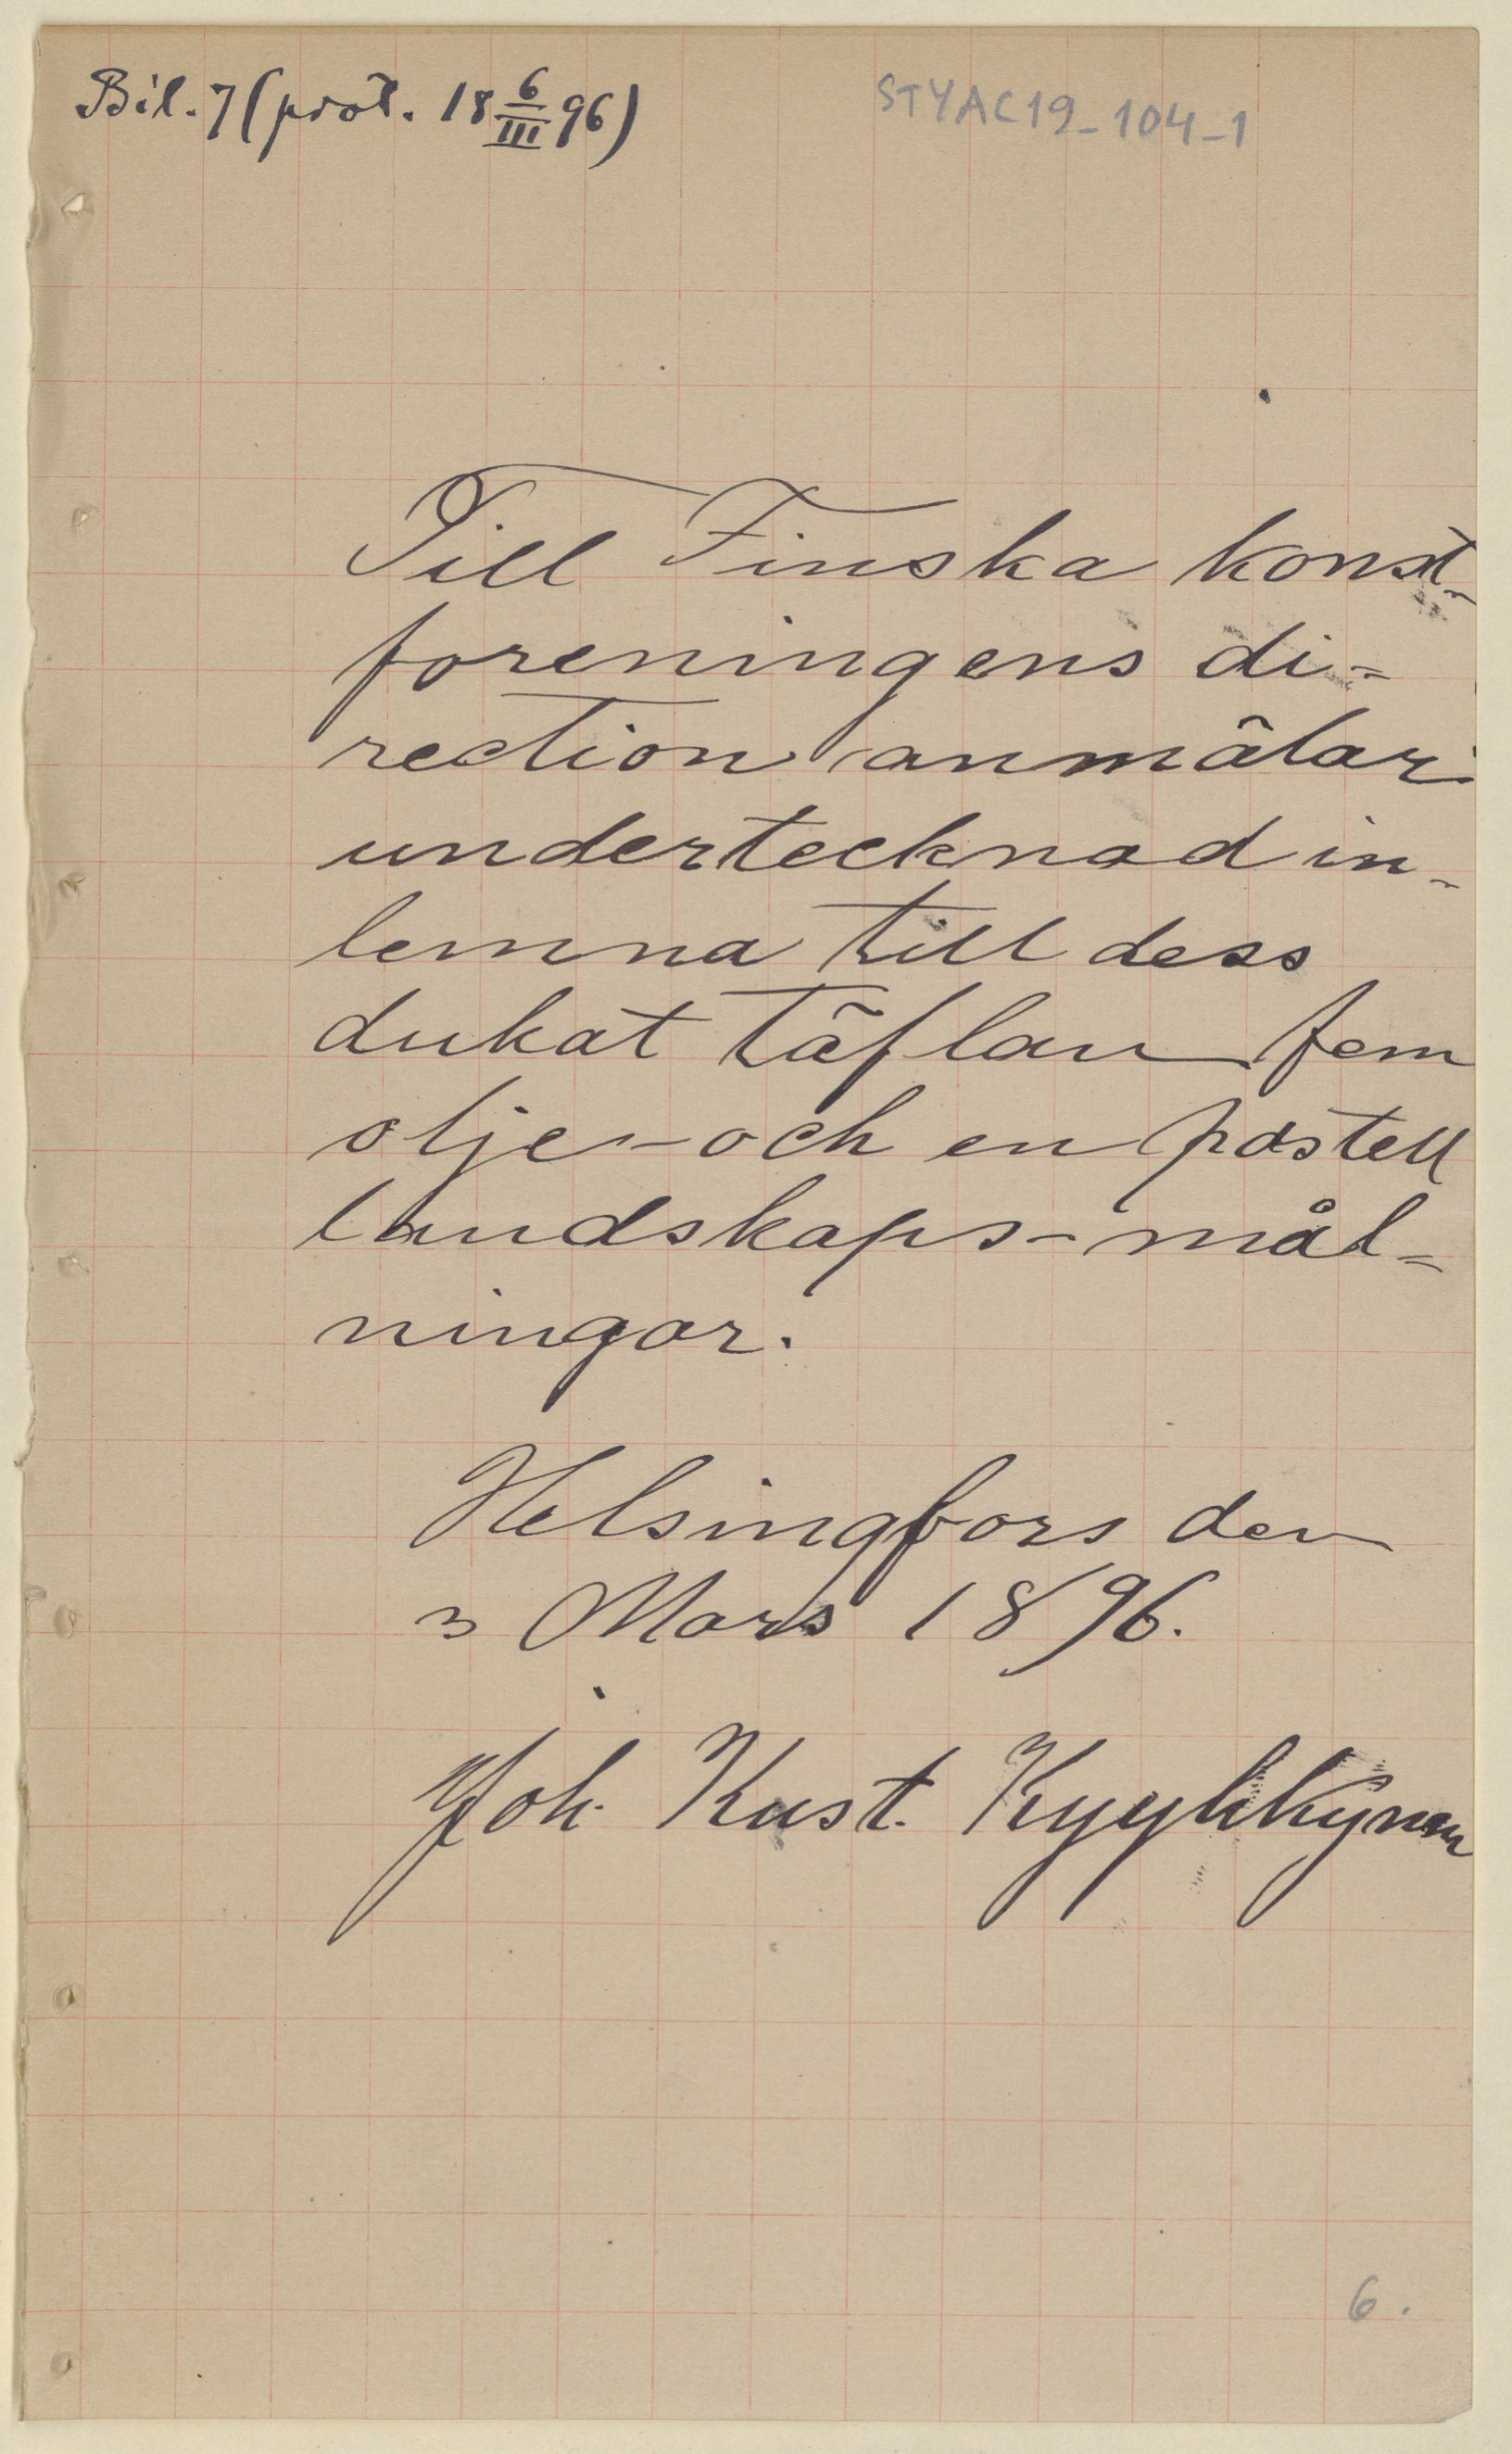 Bil. 7 (prot. 18 6/III 96)
STYAC19-104-1
Till Finska konst-
foreningens di-
rection anmälar
undertecknad in-
lemna till dess
dukat täflan fem
olje- och en pastell
landskaps-mål-
ningar.
Helsingfors den
3 Mars 1896.
Joh. Kust. Kyyhkynen
6.